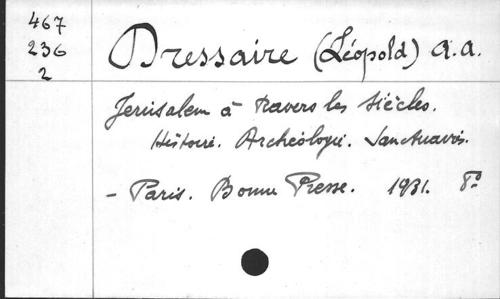 467
236
2
Dressaire (Léopold) a.a.
Jerusalem à travers les siècles.
Histoire. Archéologie. Sanctuaires.
- Paris. Bonne Presse. 1931. 8º